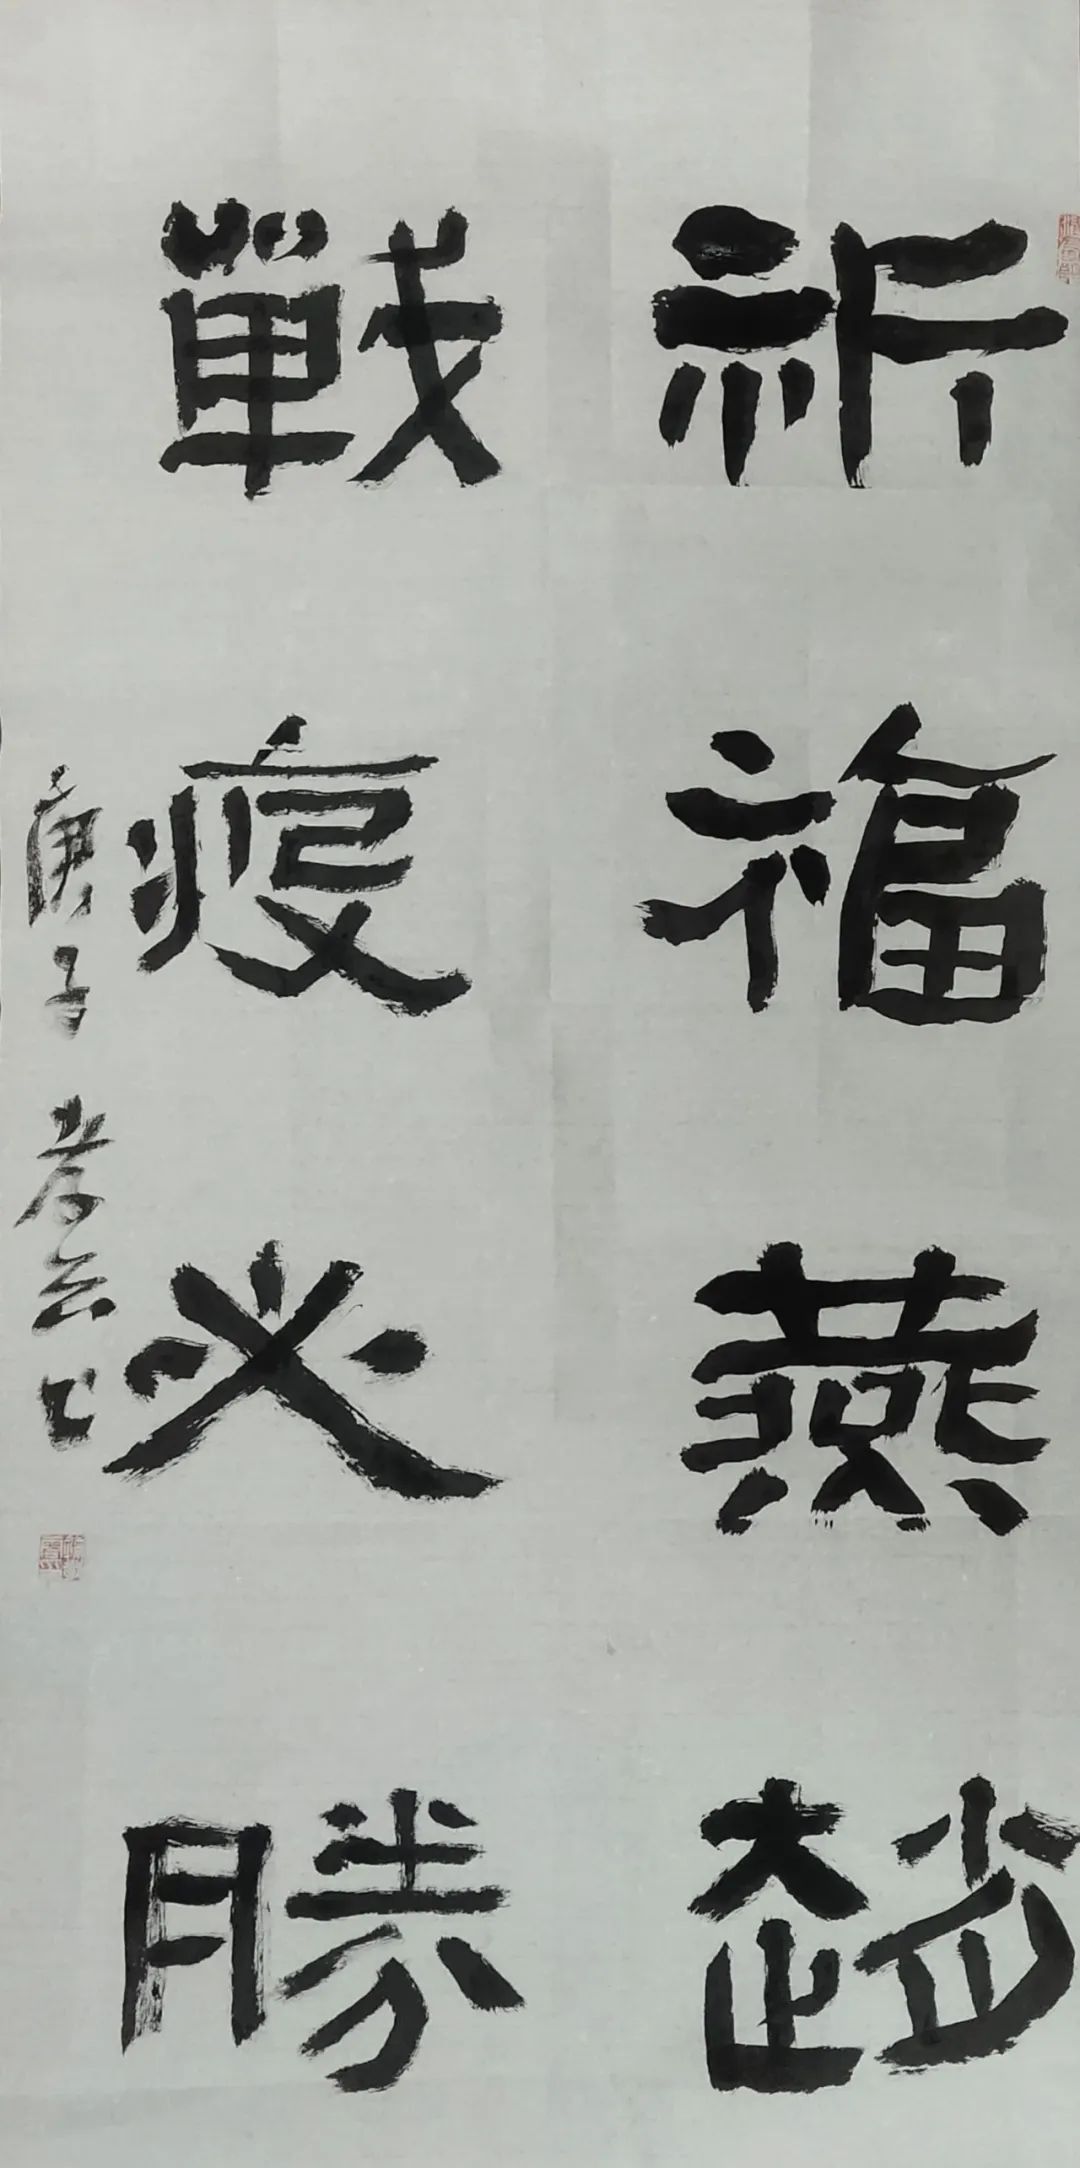 祈福燕趙
戰疫必勝
庚子孝